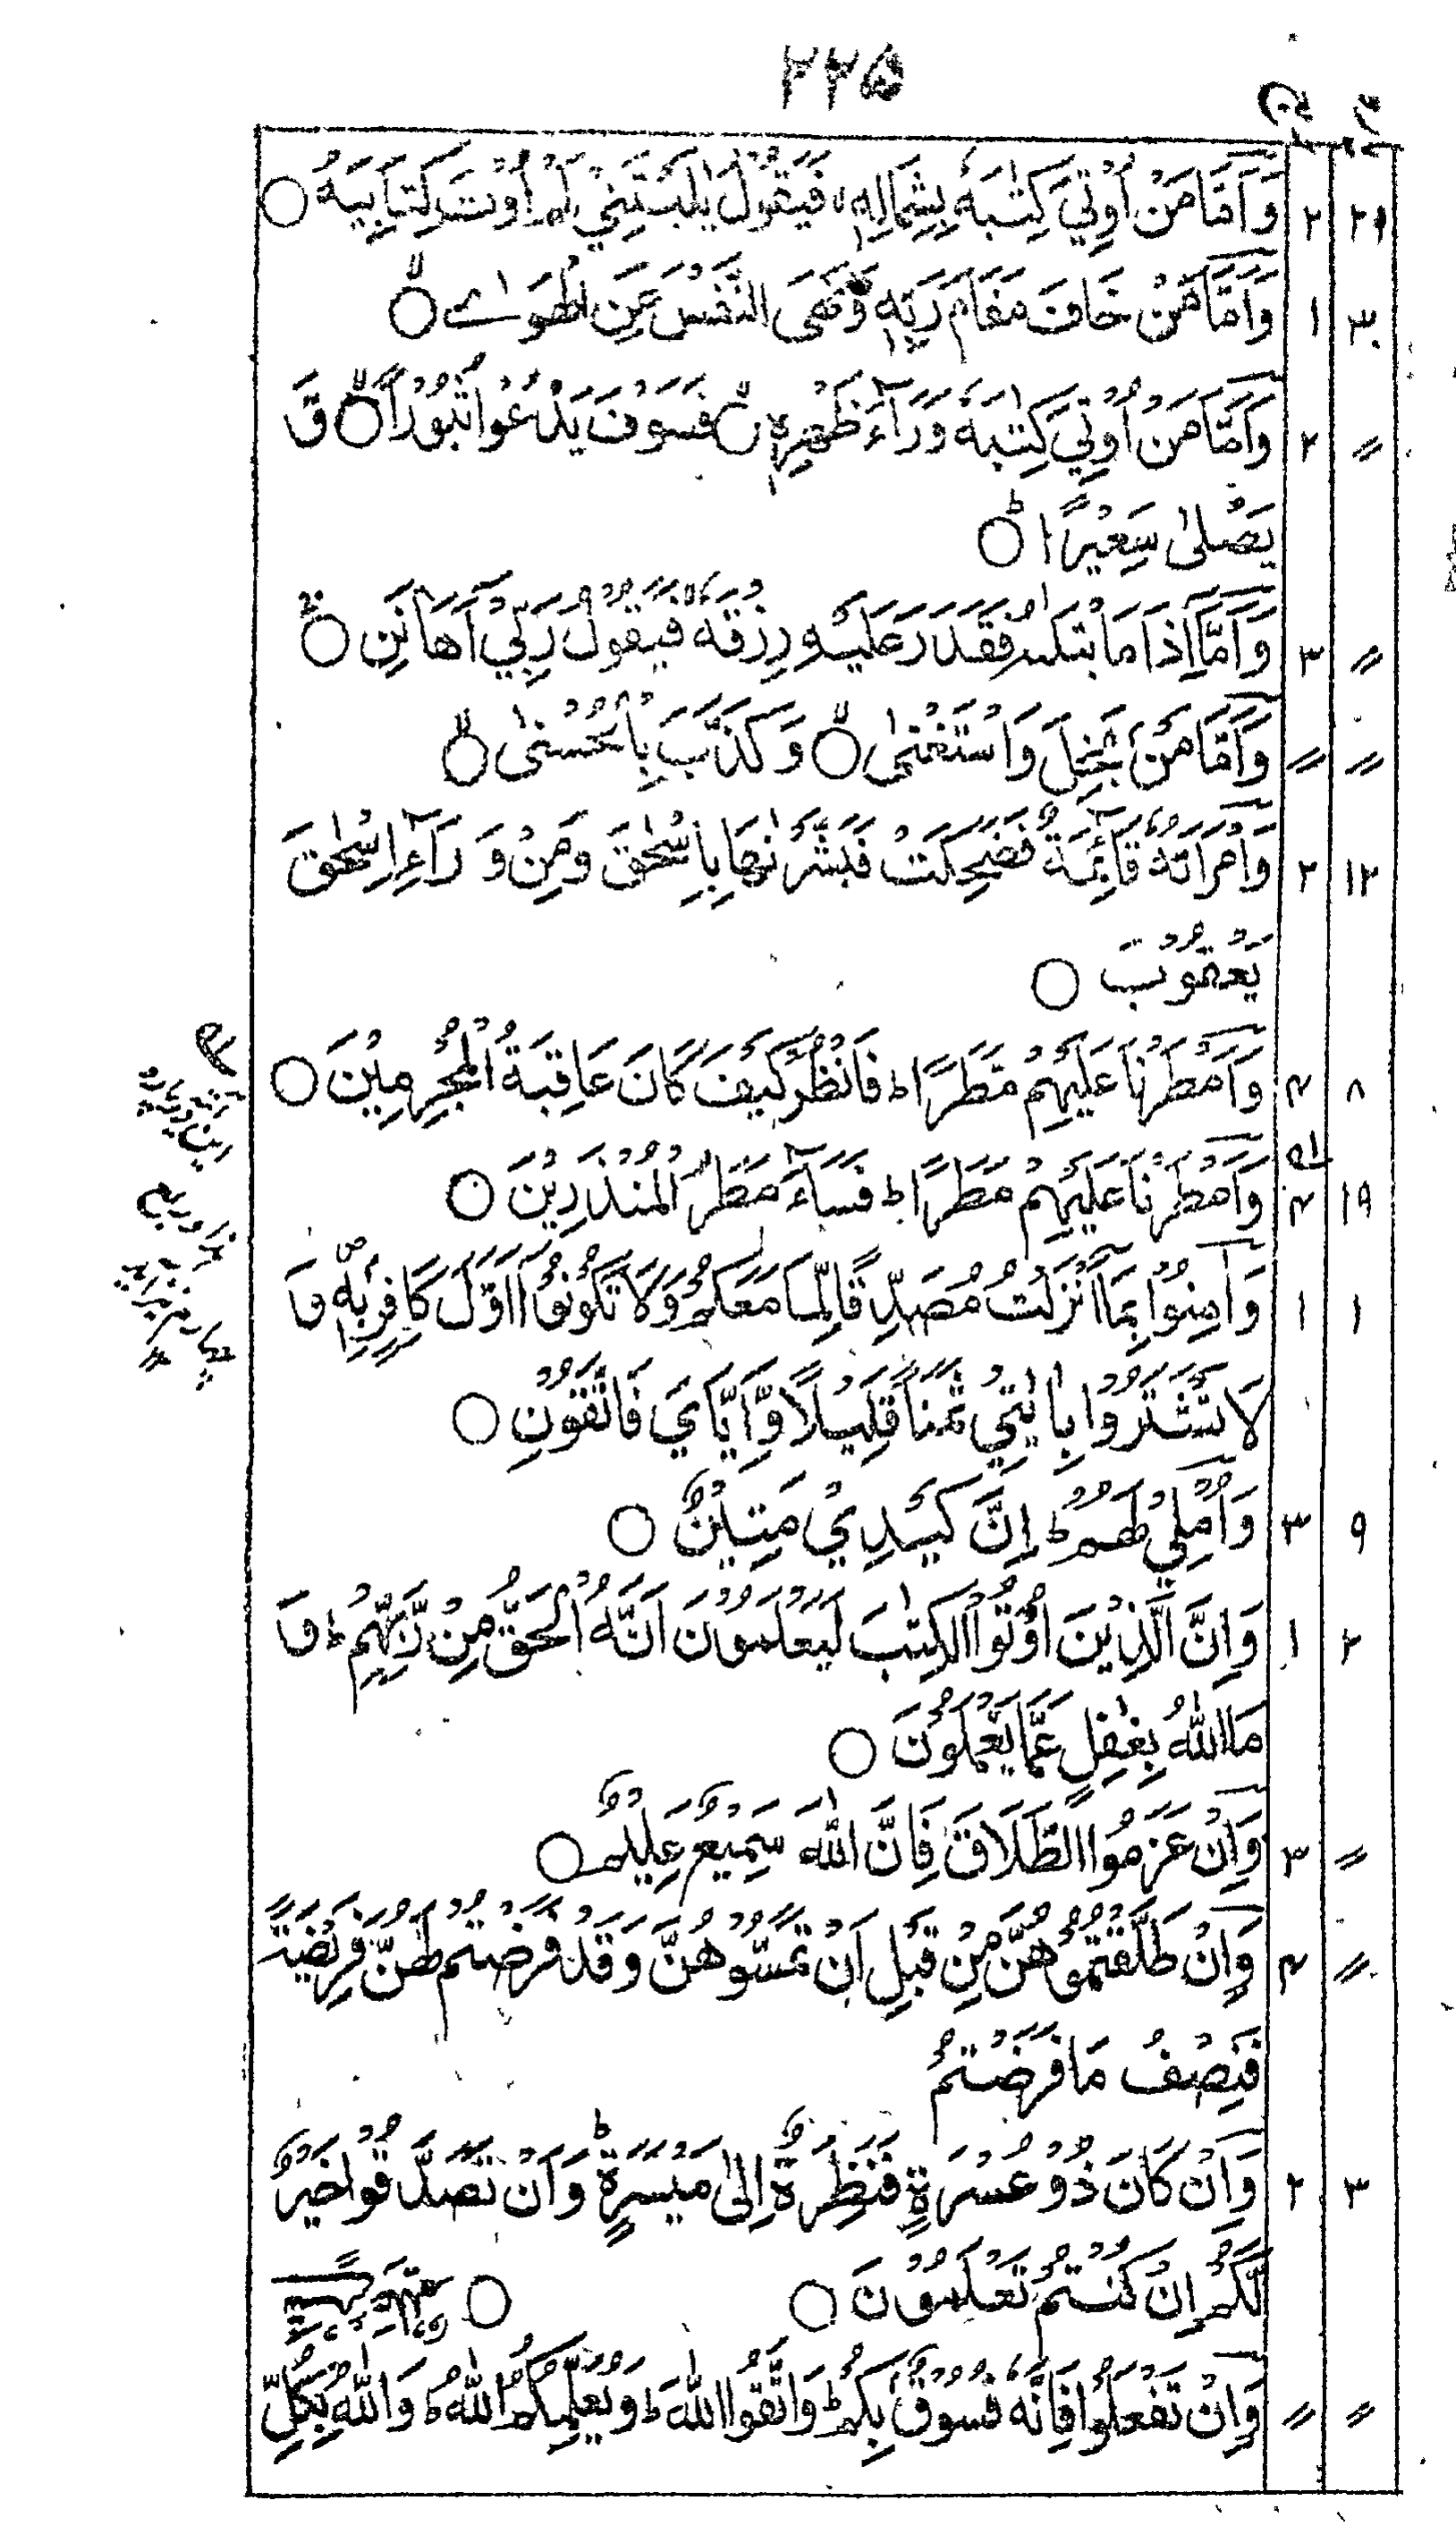 ۲۲۵
۲۹ ۲ وَاَمَّا مَنْ اُوْتِيَ كِتٰبَهٗ بِشِمَالِهٖ ۙ فَيَقُوْلُ يٰلَيْتَنِيْ لَمْ اُوْتَ كِتَابِيَهْ ○
۳۰ ۱ وَاَمَّا مَنْ خَافَ مَقَامَ رَبِّهٖ وَنَهَى النَّفْسَ عَنِ الْهَوٰے ○ۙ
〃 ۲ وَاَمَّا مَنْ اُوْتِيَ كِتٰبَهٗ وَرَآءَ ظَهْرِهٖ ○ۙ فَسَوْفَ يَدْعُوْا ثُبُوْرًا ○ۙ وَّ
يَصْلٰى سَعِيْرًا ○ؕ
〃 ۳ وَاَمَّآ اِذَا مَا ابْتَلٰىهُ فَقَدَرَ عَلَيْهِ رِزْقَهٗ فَيَقُوْلُ رَبِّيْٓ اَهَانَنِ ○ۚ
〃 〃 وَاَمَّا مَنْۢ بَخِلَ وَاسْتَغْنٰى ○ۙ وَكَذَّبَ بِالْحُسْنٰى ○ۙ
۱۲ ۲ وَامْرَاَتُهٗ قَآئِمَةٌ فَضَحِكَتْ فَبَشَّرْنٰهَا بِاِسْحٰقَ وَمِنْ وَرَآءِ اِسْحٰقَ
يَعْقُوْبَ ○
۸ ۴ وَاَمْطَرْنَا عَلَيْهِمْ مَّطَرًا ؕ فَانْظُرْ كَيْفَ كَانَ عَاقِبَةُ الْمُجْرِمِيْنَ ○
۱۹ ۴ وَاَمْطَرْنَا عَلَيْهِمْ مَّطَرًا ۚ فَسَآءَ مَطَرُ الْمُنْذَرِيْنَ ○
۱ ۱ وَاٰمِنُوْا بِمَآ اَنْزَلْتُ مُصَدِّقًا لِّمَا مَعَكُمْ وَلَا تَكُوْنُوْٓا اَوَّلَ كَافِرٍۢ بِهٖ ۪ وَ
لَا تَشْتَرُوْا بِاٰيٰتِيْ ثَمَنًا قَلِيْلًا وَّاِيَّايَ فَاتَّقُوْنِ ○
۹ ۳ وَاُمْلِيْ لَهُمْ ؕ اِنَّ كَيْدِيْ مَتِيْنٌ ○
۲ ۱ وَاِنَّ الَّذِيْنَ اُوْتُوا الْكِتٰبَ لَيَعْلَمُوْنَ اَنَّهُ الْحَقُّ مِنْ رَّبِّهِمْ ؕ وَ
مَا اللّٰهُ بِغٰفِلٍ عَمَّا يَعْمَلُوْنَ ○
〃 ۳ وَاِنْ عَزَمُوا الطَّلَاقَ فَاِنَّ اللّٰهَ سَمِيْعٌ عَلِيْمٌ ○
〃 ۴ وَاِنْ طَلَّقْتُمُوْهُنَّ مِنْ قَبْلِ اَنْ تَمَسُّوْهُنَّ وَقَدْ فَرَضْتُمْ لَهُنَّ فَرِيْضَةً
فَنِصْفُ مَا فَرَضْتُمْ
۳ ۲ وَاِنْ كَانَ ذُوْ عُسْرَةٍ فَنَظِرَةٌ اِلٰى مَيْسَرَةٍ ؕ وَاَنْ تَصَدَّقُوْا خَيْرٌ
لَّكُمْ اِنْ كُنْتُمْ تَعْلَمُوْنَ ○ ○
〃 〃 وَاِنْ تَفْعَلُوْا فَاِنَّهٗ فُسُوْقٌۢ بِكُمْ ؕ وَاتَّقُوا اللّٰهَ ؕ وَيُعَلِّمُكُمُ اللّٰهُ ؕ وَاللّٰهُ بِكُلِّ